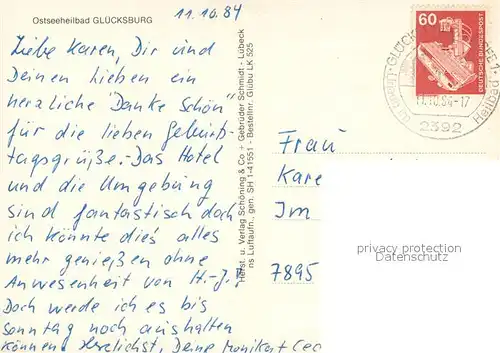 Ostseeheilbad GLÜCKSBURG
11.10.84
Liebe Karen, Dir und
Deinen Lieben ein
herzliche "Danke Schön"
für die lieben Geburts-
tagsgrüße. Das Hotel
und die Umgebung
sind fantastisch doch
ich könnte dies alles
mehr genießen ohne
Anwesenheit von H.-J.
Doch werde ich es bis
Sonntag noch aushalten
können. Herzlichst, Deine
Herst. u. Verlag Schöning & Co + Gebrüder Schmidt - Lübeck
ns Luftaufn. gen. SH 1-41551 - Bestellnr. Glübu LK 525
60
DEUTSCHE BUNDESPOST
11.10.84-17
2392
Frau
Kare
Im
7895
privacy protection
Datenschutz